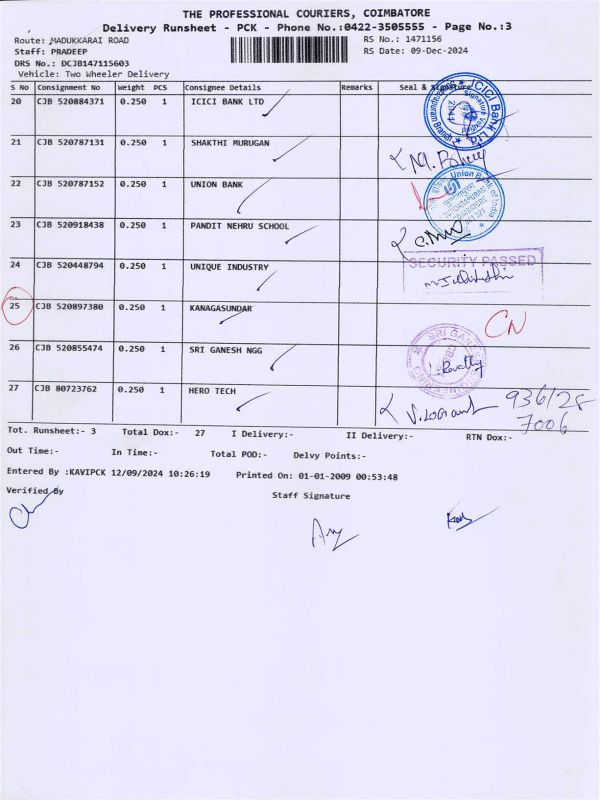 THE PROFESSIONAL COURIERS, COIMBATORE
Delivery Runsheet - PCK - Phone No.:0422-3505555 - Page No.:3
Route: MADUKKARAI ROAD RS No.: 1471156
Staff: PRADEEP RS Date: 09-Dec-2024
DRS No.: DCJB147115603
Vehicle: Two Wheeler Delivery
S No Consignment No Weight PCS Consignee Details Remarks Seal & Signature
20 CJB 520884371 0.250 1 ICICI BANK LTD
ICICI Bank Ltd
21 CJB 520787131 1 SHAKTHI MURUGAN
22 CJB 520787152 0.250 1 UNION BANK
Union Bank of India
23 CJB 520918438 0.250 1 PANDIT NEHRU SCHOOL
24 CJB 520448794 0.250 1 UNIQUE INDUSTRY
SECURITY PASSED
25 CJB 520897380 0.250 1 KANAGASUNDAR
CN
26 CJB 520855474 0.250 1 SRI GANESH NGG
SRI GANESH
27 CJB 80723762 0.250 1 HERO TECH
936128
7006
Tot. Runsheet:- 3 Total Dox:- 27 I Delivery:- II Delivery:- RTN Dox:-
Out Time:- In Time:- Total POD:- Delvy Points:-
Entered By :KAVIPCK 12/09/2024 10:26:19 Printed On: 01-01-2009 00:53:48
Verified By
Staff Signature